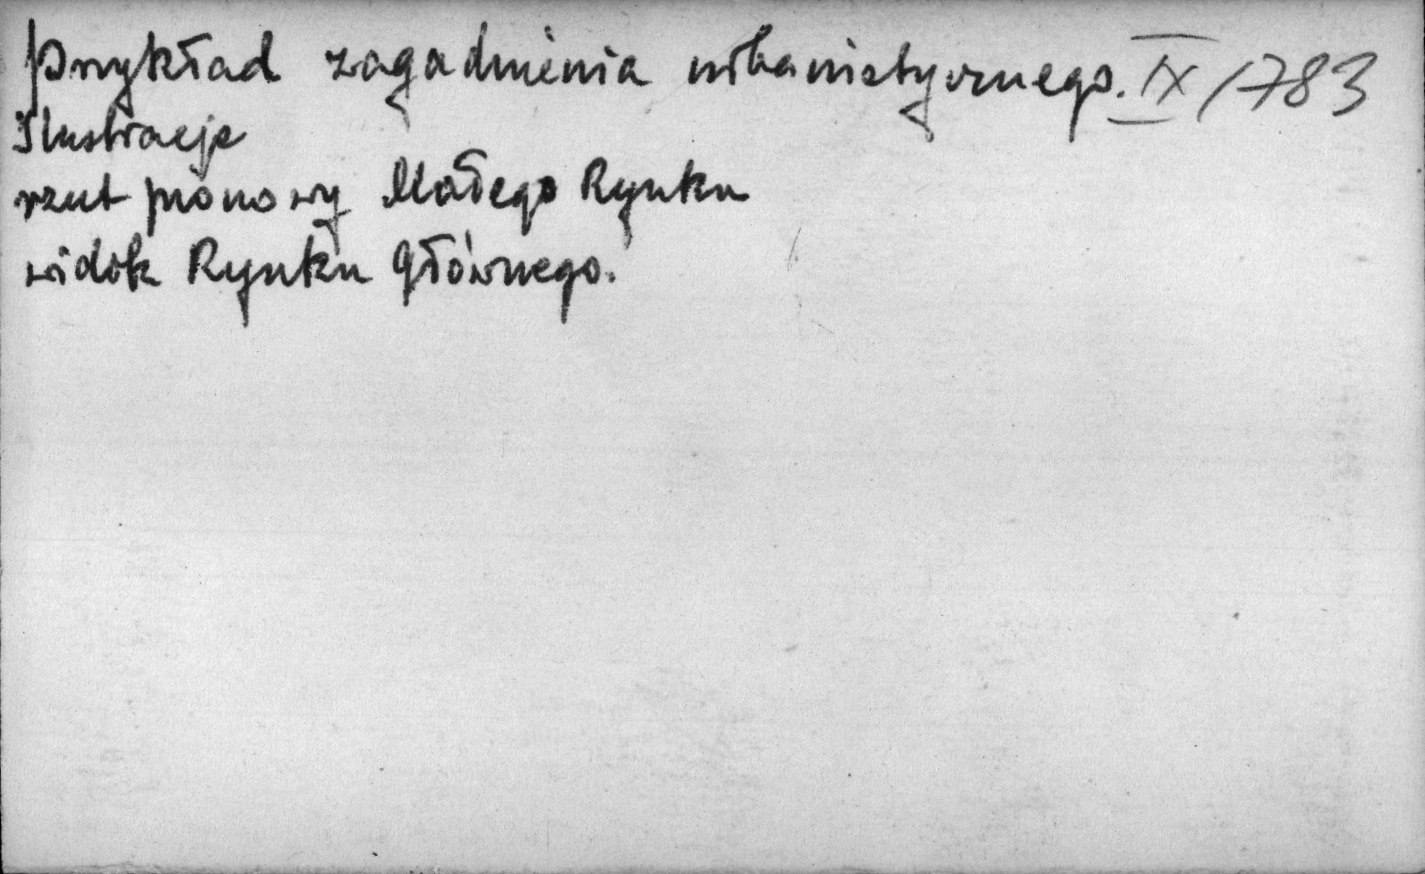 Przykład zagadnienia urbanistycznego. IX/783
Ilustracje
rzut pionowy Małego Rynku
widok Rynku Głównego.